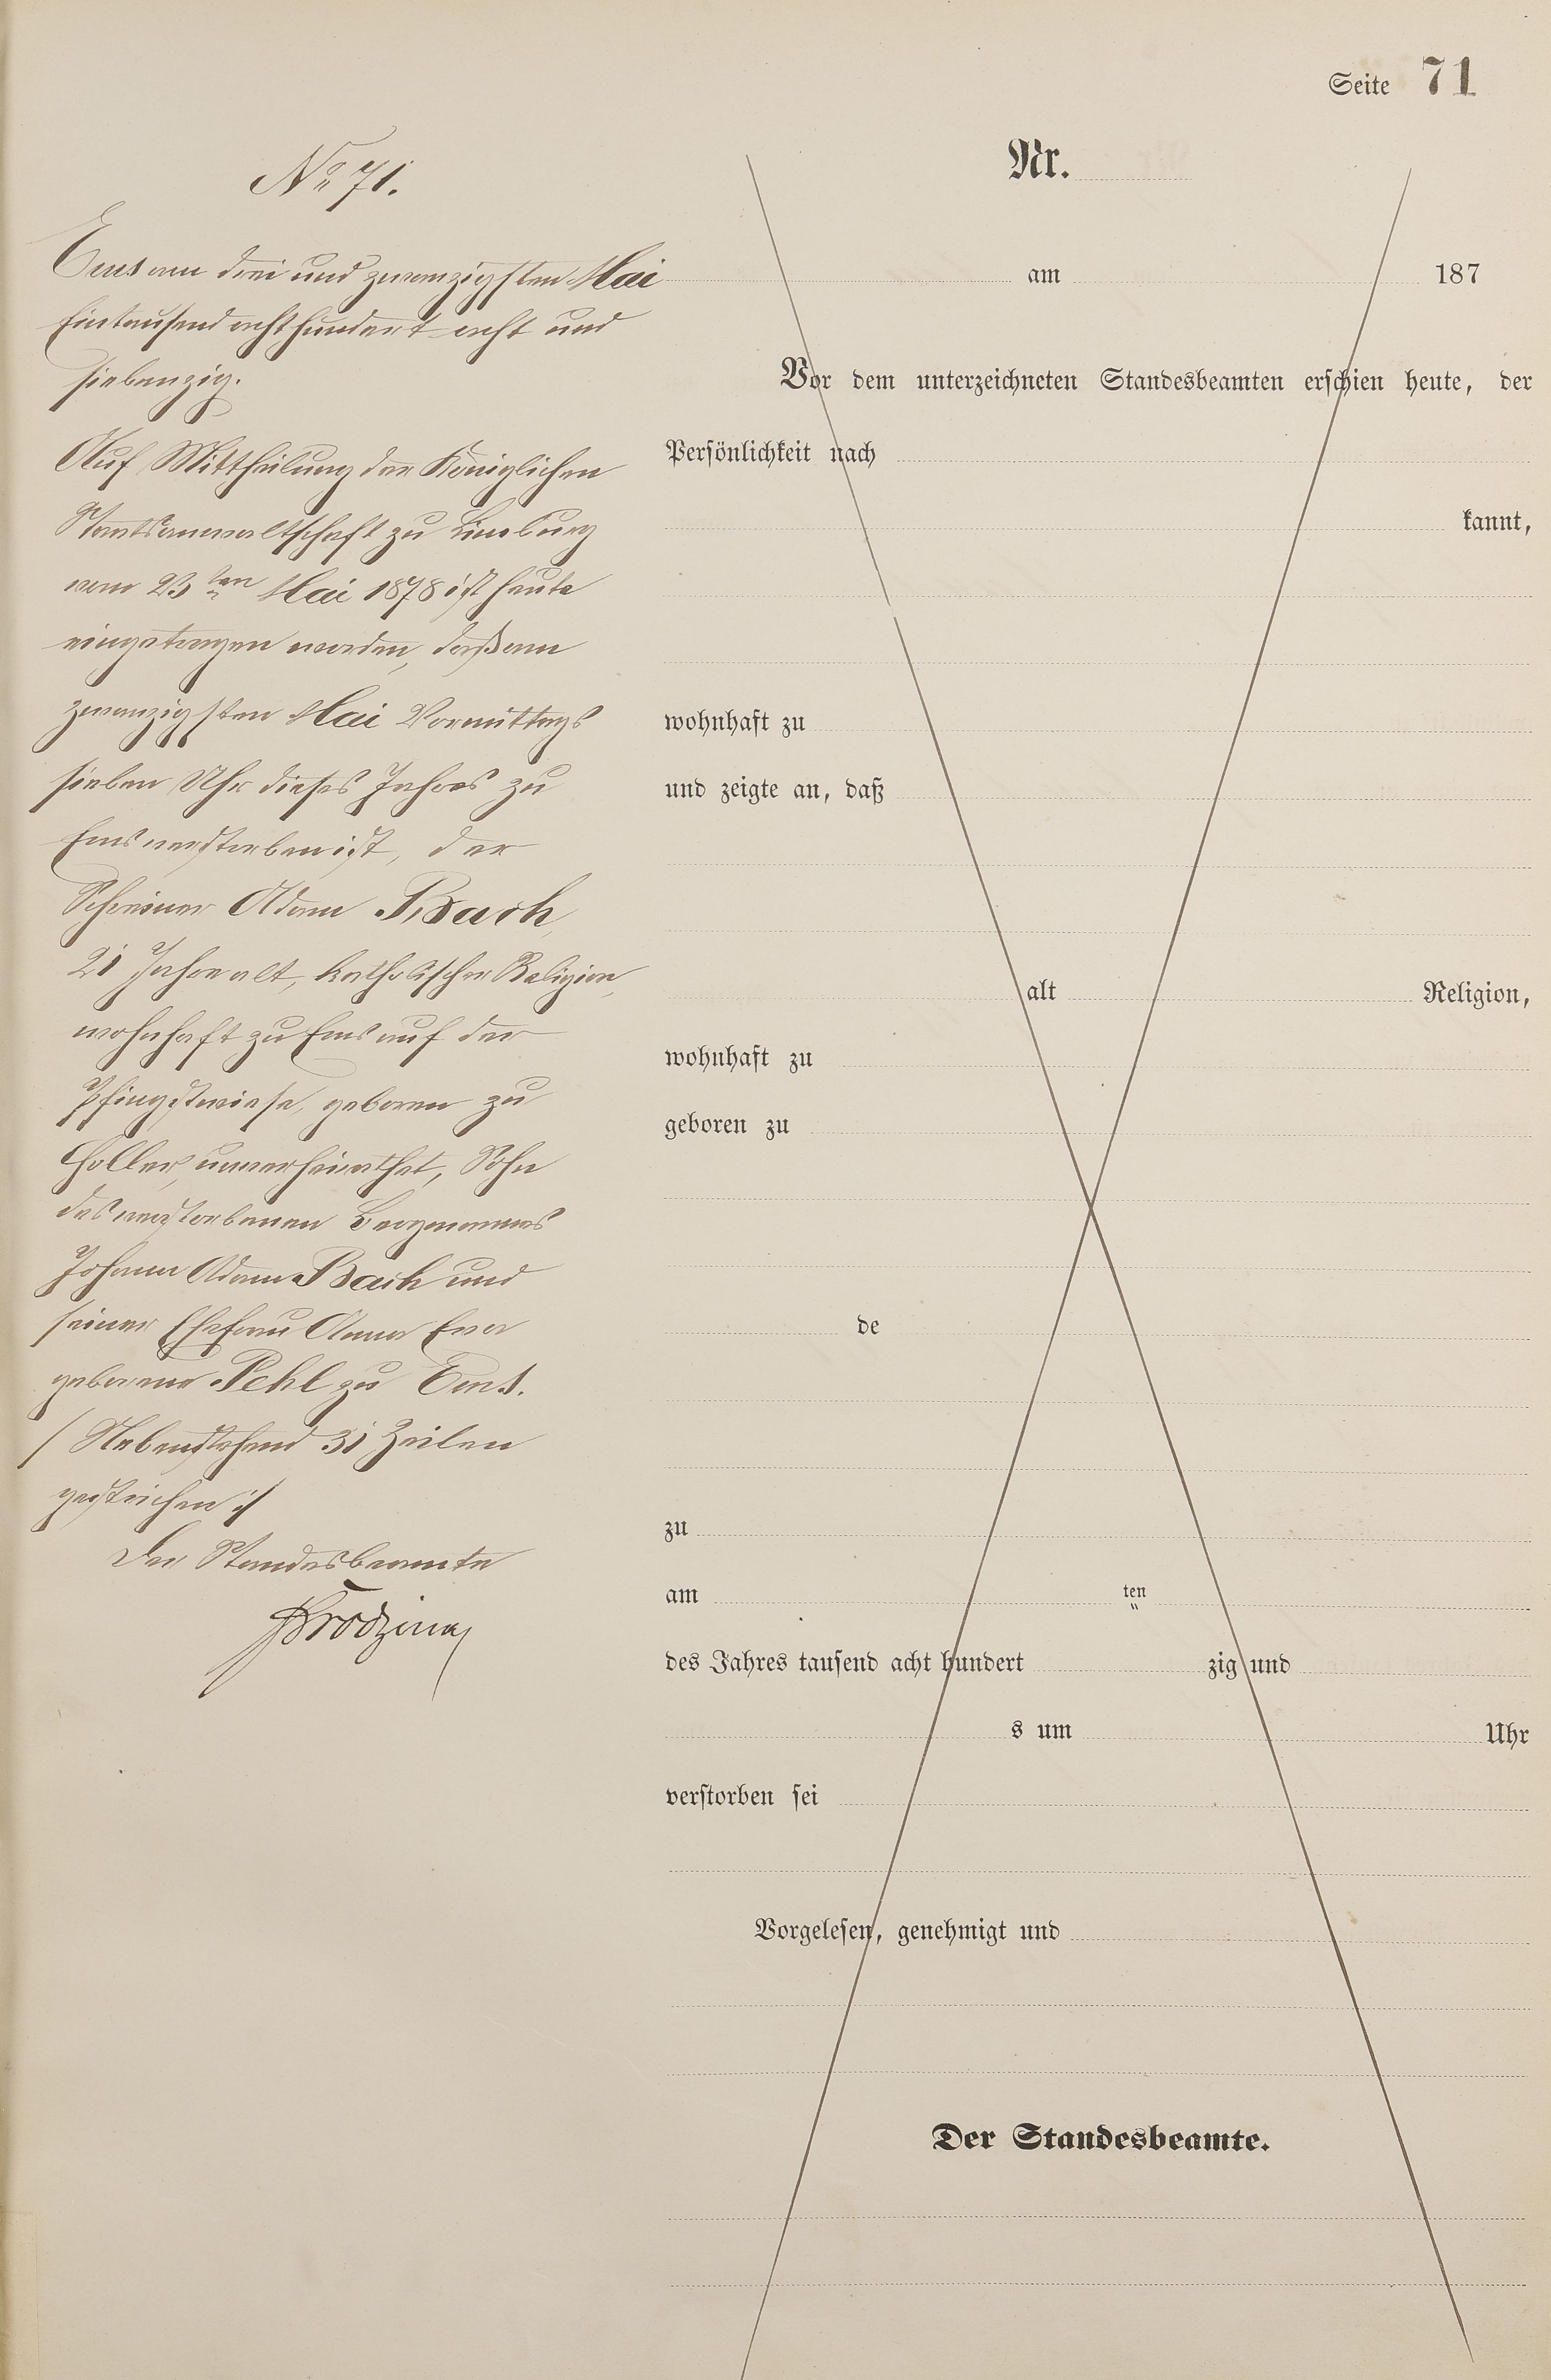 Seite 71
No 71.
Ems am drei und zwanzigsten Mai
Eintausend achthundert acht und
siebenzig.
Auf Mittheilung der Königlichen
Staatsanwaltschaft zu Limburg
vom 23ten Mai 1878 ist heute
eingetragen worden, daß am
zwanzigsten Mai Vormittags
sieben Uhr dieses Jahres zu
Ems verstorben ist, der
Schreiner Adam Bach,
21 Jahre alt, katholischer Religion,
wohnhaft zu Ems auf der
Pfingstwiese, geboren zu
Holler, unverheirathet, Sohn
des verstorbenen Bergmannes
Johann Adam Bach und
seiner Ehefrau Anna Eva
geborene Pehl zu Ems.
/ Nebenstehend 31 Zeilen
gestrichen /
Der Standesbeamte
Nr.
am 187
Vor dem unterzeichneten Standesbeamten erschien heute, der
Persönlichkeit nach
kannt,
wohnhaft zu
und zeigte an, daß
alt Religion,
wohnhaft zu
geboren zu
de
zu
am ten
des Jahres tausend acht hundert zig und
s um Uhr
verstorben sei
Vorgelesen, genehmigt und
Der Standesbeamte.